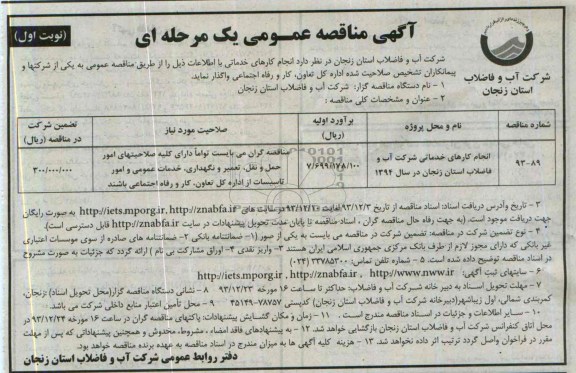 آگهی مناقصه عمومی یک مرحله ای
(نوبت اول)
شرکت آب و فاضلاب
استان زنجان
شرکت آب و فاضلاب استان زنجان در نظر دارد انجام کارهای خدماتی با اطلاعات ذیل را از طریق مناقصه عمومی به یکی از شرکتها و
پیمانکاران تشخیص صلاحیت شده اداره کل تعاون، کار و رفاه اجتماعی واگذار نماید.
۱ - نام دستگاه مناقصه گزار: شرکت آب و فاضلاب استان زنجان
۲ - عنوان و مشخصات کلی مناقصه :
شماره مناقصه
نام و محل پروژه
برآورد اولیه (ریال)
صلاحیت مورد نیاز
تضمین شرکت در مناقصه (ریال)
۹۳-۸۹
انجام کارهای خدماتی شرکت آب و
فاضلاب استان زنجان در سال ۱۳۹۴
۷/۶۹۹/۱۷۸/۱۰۰
مناقصه گران می بایست تواماً دارای کلیه صلاحیتهای امور
حمل و نقل، تعمیر و نگهداری، خدمات عمومی و امور
تاسیسات از اداره کل تعاون، کار و رفاه اجتماعی باشند
۳۰۰/۰۰۰/۰۰۰
۳ - تاریخ وآدرس دریافت اسناد: اسناد مناقصه از تاریخ ۹۳/۱۲/۳ لغایت ۹۳/۱۲/۱۰ در سایت های http://iets.mporg.ir, http://znabfa.ir به صورت رایگان
جهت دریافت موجود است. (به جهت رفاه حال مناقصه گران ، اسناد مناقصه تا پایان مدت تحویل پیشنهادات در سایت http://znabfa.ir قابل دسترسی است).
۴ - نوع تضمین شرکت در مناقصه: تضمین شرکت در مناقصه می بایست به یکی از صور (۱- ضمانتنامه بانکی ۲- ضمانتنامه های صادره از سوی موسسات اعتباری
غیر بانکی که دارای مجوز لازم از طرف بانک مرکزی جمهوری اسلامی ایران هستند ۳- واریز نقدی ۴- اوراق مشارکت بی نام ) ارائه گردد که جزئیات به صورت مشروح
در اسناد مناقصه توضیح داده شده است. ۵ - شماره تلفن تماس: ۳۳۷۸۵۳۰۰ (۰۲۴)
۶ - سایتهای ثبت آگهی: http://iets.mporg.ir , http://znabfa.ir , http://www.nww.ir
۷ - مهلت تحویل اسناد به دبیر خانه شرکت آب و فاضلاب: حداکثر تا ساعت ۱۶ مورخه ۹۳/۱۲/۲۳ ۸ - نشانی دستگاه مناقصه گزار(محل تحویل اسناد): زنجان،
کمربندی شمالی، اول زیباشهر(دبیرخانه شرکت آب و فاضلاب استان زنجان) کدپستی ۷۸۷۵۷-۴۵۱۴۹ ۹ - محل تأمین اعتبار منابع داخلی شرکت می باشد.
۱۰ - سایر اطلاعات و جزئیات در اسناد مناقصه مندرج است. ۱۱ - زمان و مکان گشایش پیشنهادات: پاکتهای مناقصه گران در ساعت ۱۶ مورخه ۹۳/۱۲/۲۴ در
محل اتاق کنفرانس شرکت آب و فاضلاب استان زنجان بازگشایی خواهد شد. ۱۲ - به پیشنهادهای فاقد امضاء ، مشروط، مخدوش و همچنین پیشنهاداتی که پس از مهلت
مقرر در فراخوان واصل گردد ترتیب اثر داده نخواهد شد. ۱۳ - هزینه کلیه آگهی ها به میزان مندرج در اسناد مناقصه به عهده برنده مناقصه خواهد بود.
دفتر روابط عمومی شرکت آب و فاضلاب استان زنجان